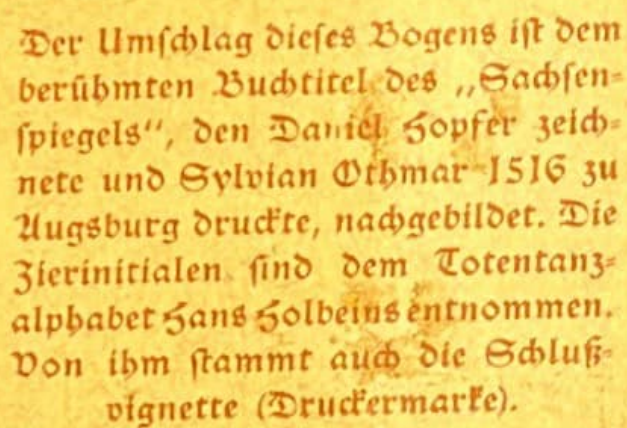 Der Umſchlag dieſes Bogens iſt dem
berühmten Buchtitel des „Sachſen-
ſpiegels“, den Daniel Hopfer zeich-
nete und Sylvian Othmar 1516 zu
Augsburg druckte, nachgebildet. Die
Zierinitialen ſind dem Totentanz-
alphabet Hans Holbeins entnommen.
Von ihm ſtammt auch die Schluß-
vignette (Druckermarke).